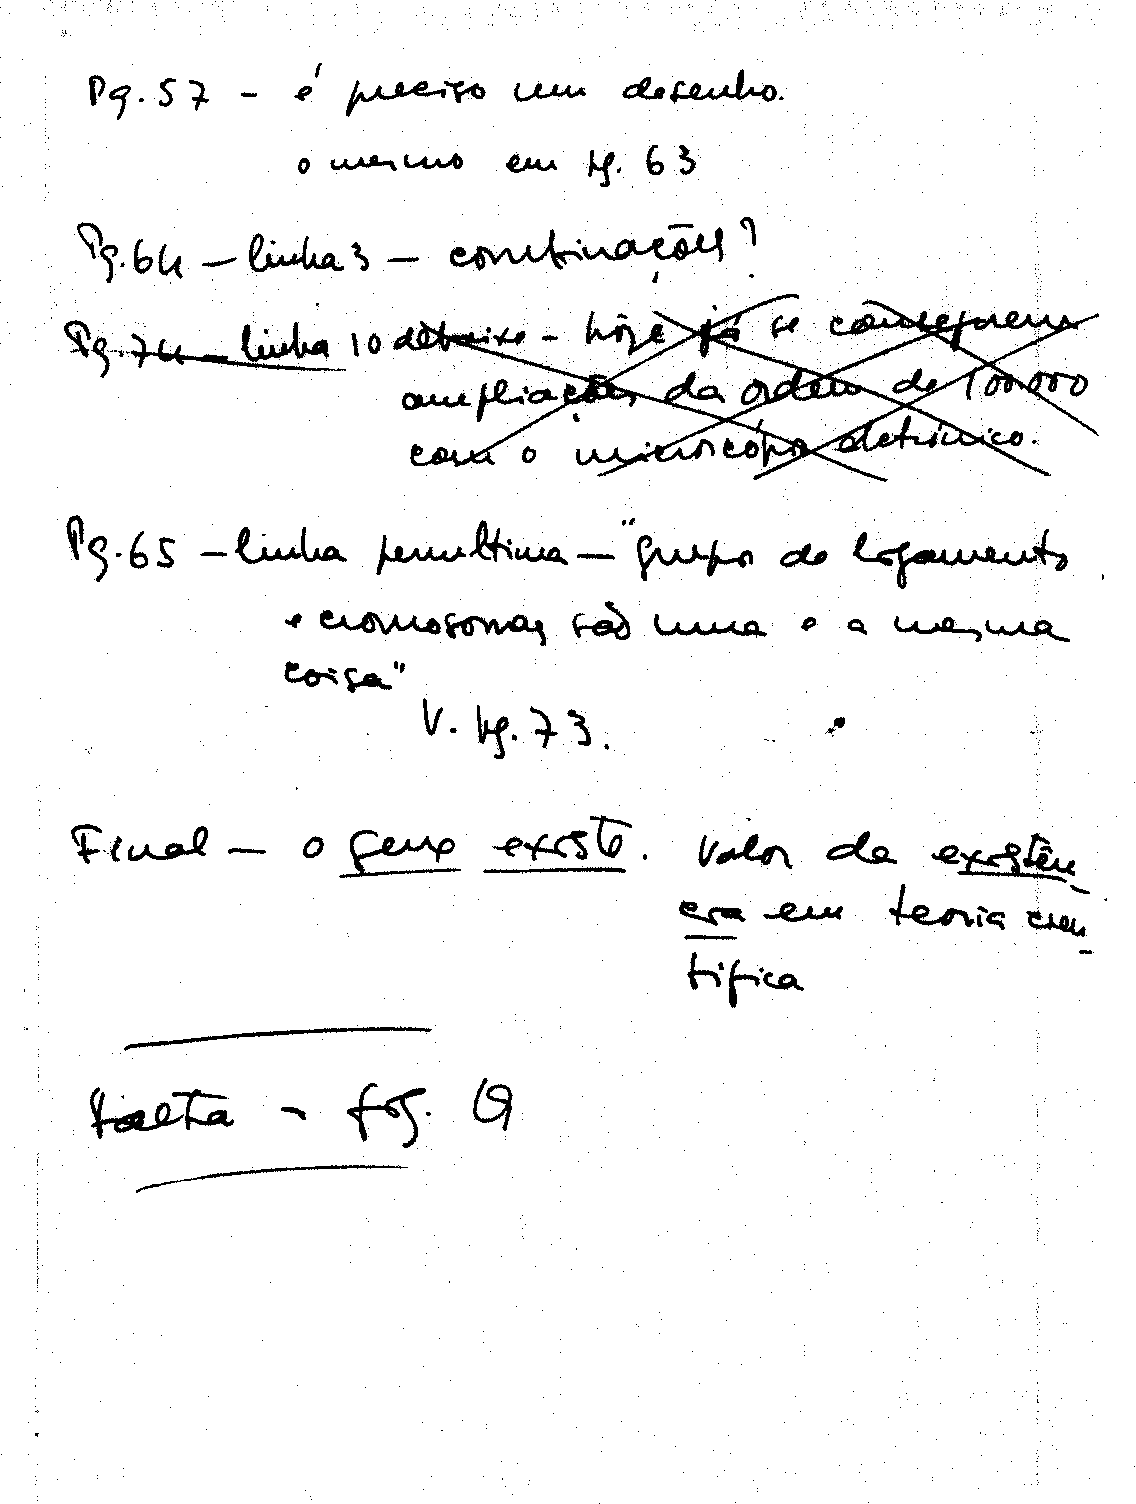 Pg. 57 - é preciso um desenho.
o mesmo em pg. 63
Pg. 64 - linha 3 - combinações?
Pg. 74 - linha 10 debaixo - hoje já se conseguem
ampliações da ordem de 100.000
com o microscópio eletrônico.
Pg. 65 - linha penultima - "grupo de ligamento
e cromosomas são uma e a mesma
coisa"
V. pg. 73.
Final - o gene existe. Valor da existên-
cia em teoria cien-
tifica
Falta - fig.